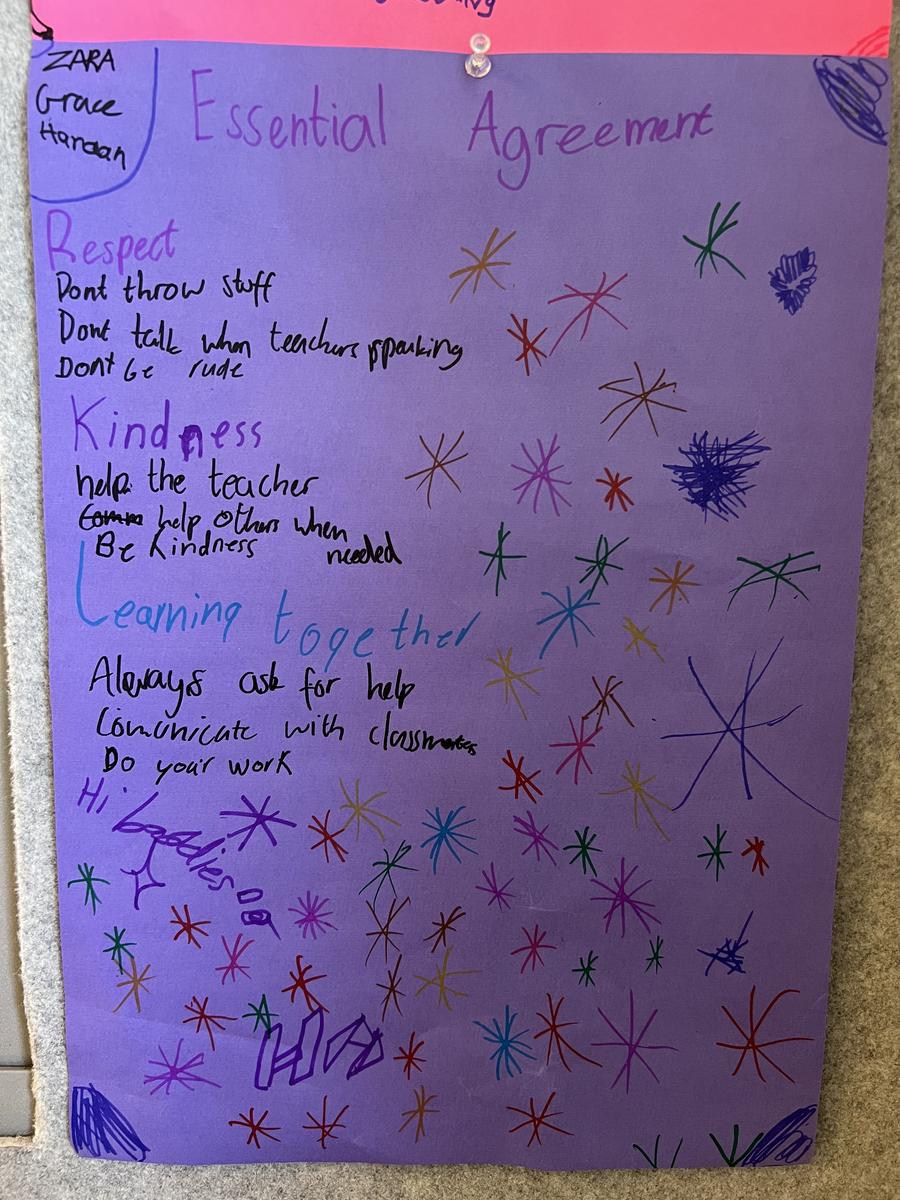 ZARA
Grace
Essential Agreement
Respect
Dont throw stuff
Dont talk when teachers speaking
Dont be rude
Kindness
help the teacher
help others when
needed
Be Kindness
Learning together
Always ask for help
Comunicate with classmates
Do your work
Hi
HA